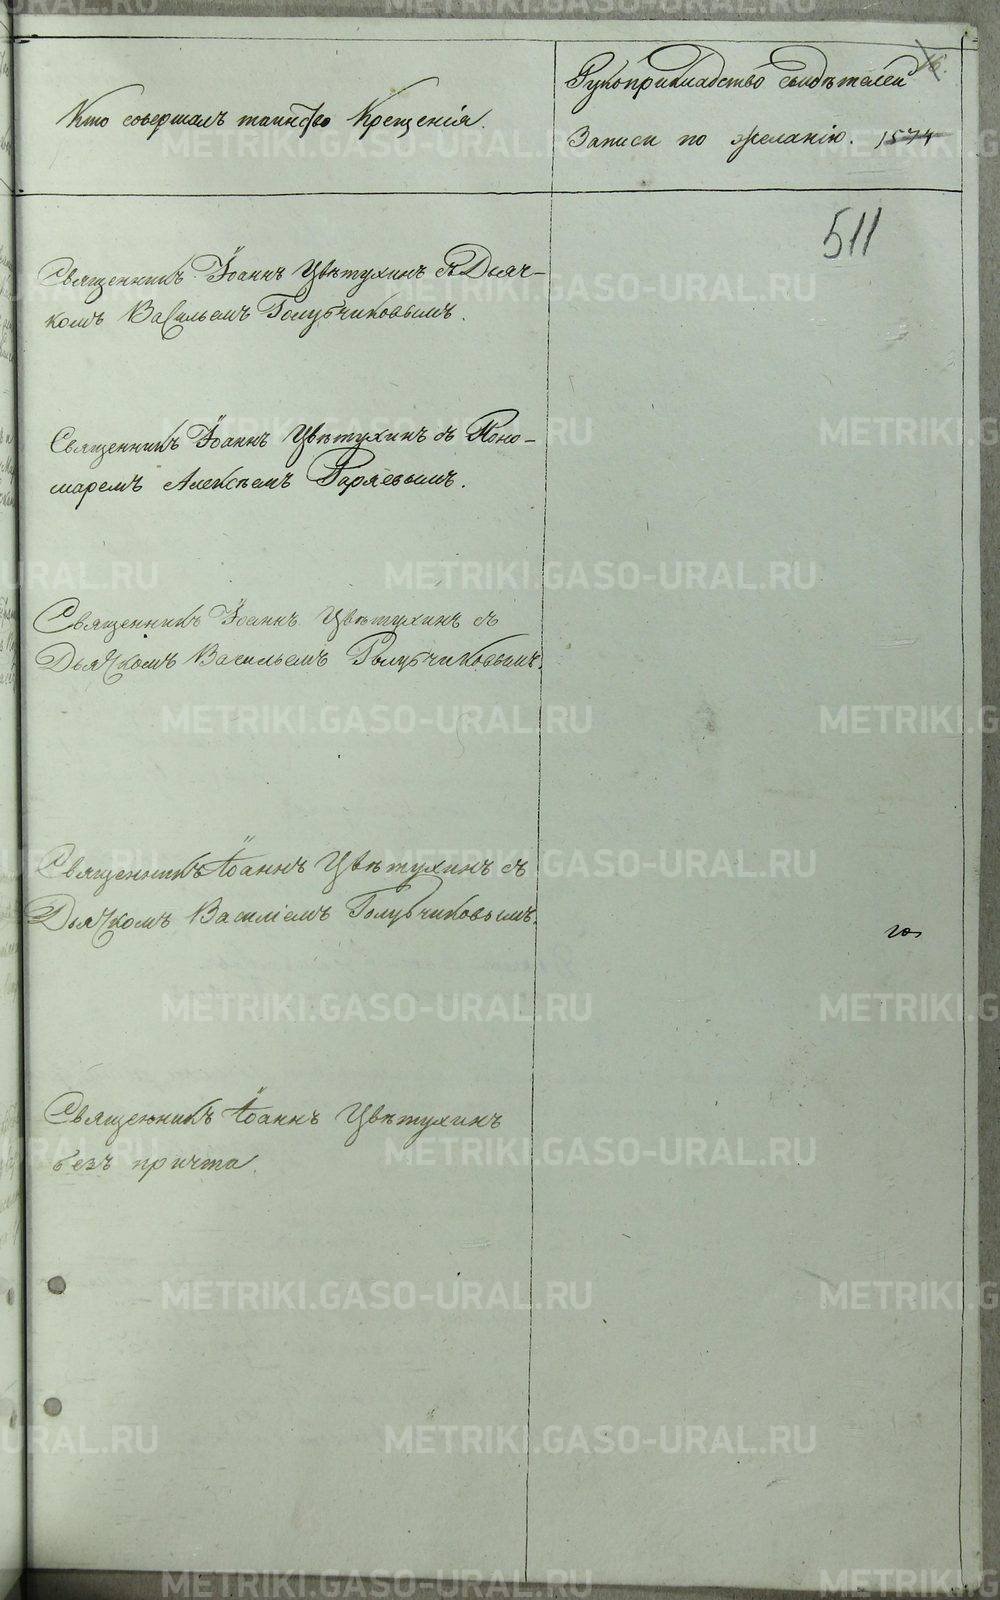 Кто совершалъ таинство Крещенія.
Рукоприкладство свидѣтелей
записи по желанію. 1574
16.
511
Священникъ Іоаннъ Цвѣтухинъ съ Дьяч-
комъ Васильемъ Голубчиковымъ.
Священникъ Іоаннъ Цвѣтухинъ съ Поно-
маремъ Алексѣемъ
Священникъ Іоаннъ Цвѣтухинъ съ
Дьячкомъ Васильемъ Голубчиковымъ.
Священникъ Іоаннъ Цвѣтухинъ съ
Дьячкомъ Василіемъ Голубчиковымъ.
Священникъ Іоаннъ Цвѣтухинъ
безъ причта.
METRIKI.GASO-URAL.RU